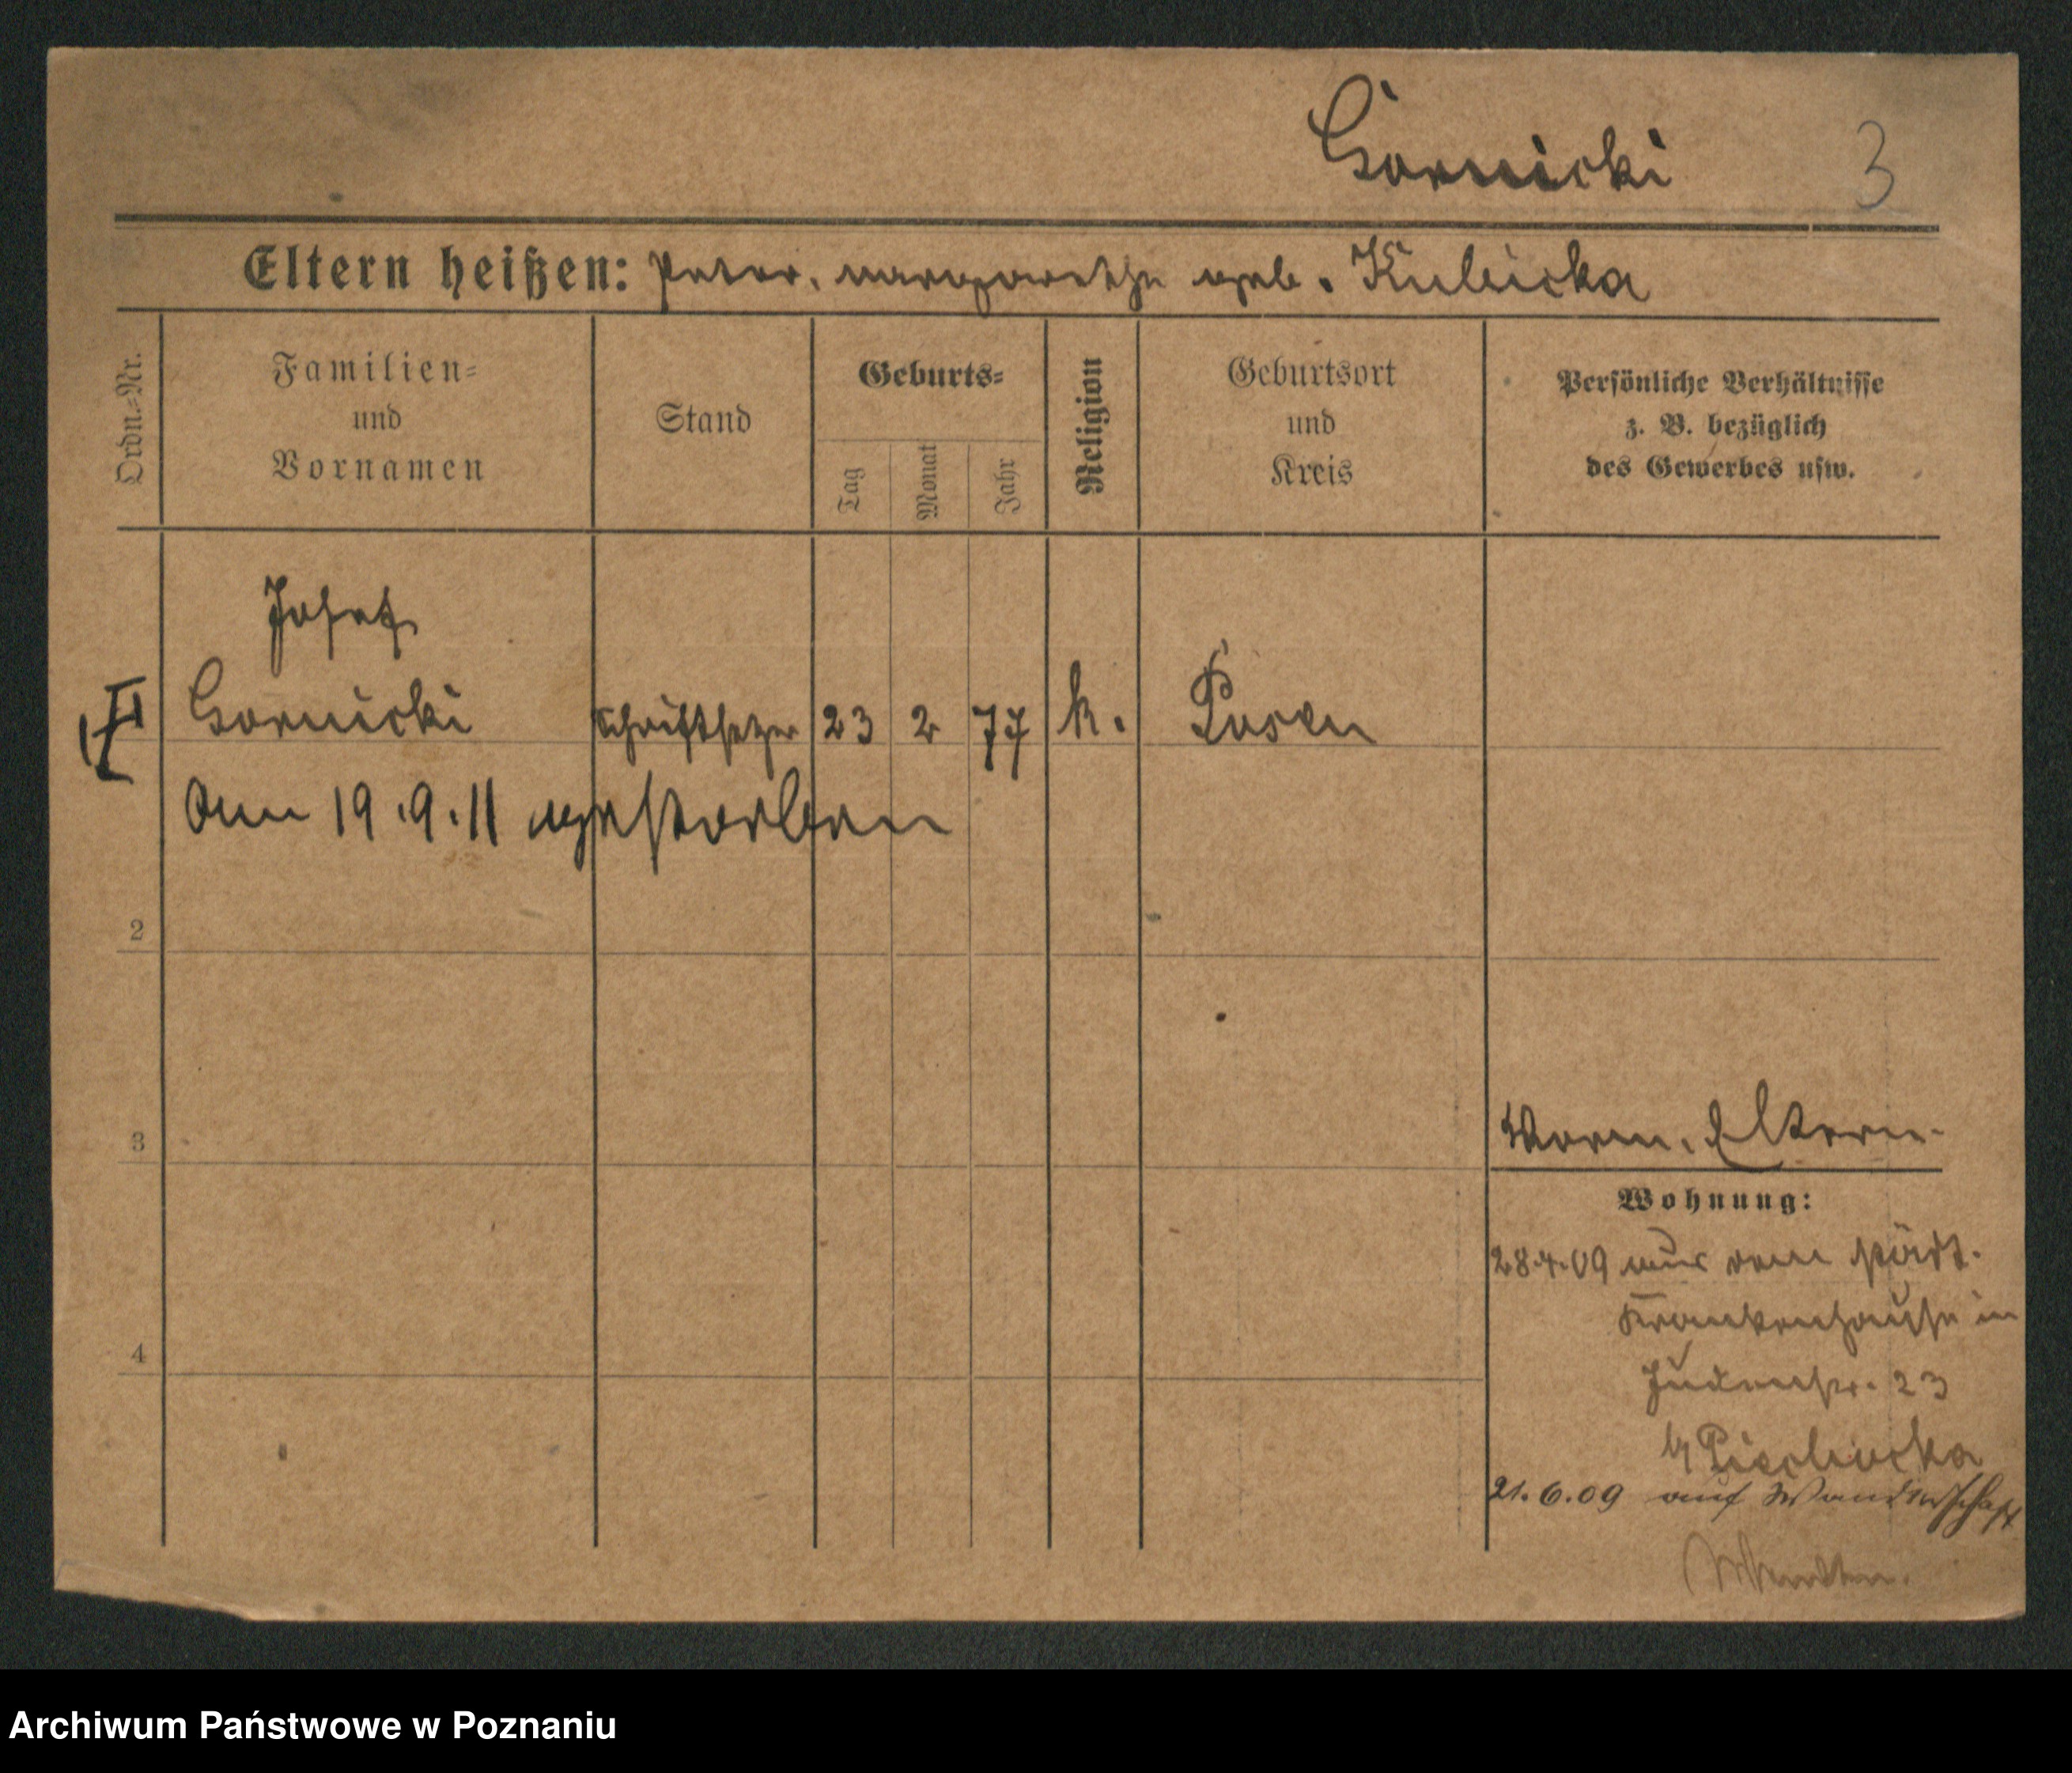 Gornicki 3
Eltern heißen: Peter, Margarethe geb. Kubicka
Ordn.-Nr.
Familien-
und
Vornamen
Stand
Geburts-
Tag
Monat
Jahr
Religion
Geburtsort
und
Kreis
Persönliche Verhältnisse
z. B. bezüglich
des Gewerbes usw.
Josef
Gornicki Schriftsetzer 23 2 77 k. Posen
Am 19.9.11 gestorben
2
3
Worm. Eltern.
Wohnung:
28.4.09 aus dem städt.
Krankenhause in
Judenstr. 23
4
b/
21.6.09 auf Wanderschaft
Archiwum Państwowe w Poznaniu